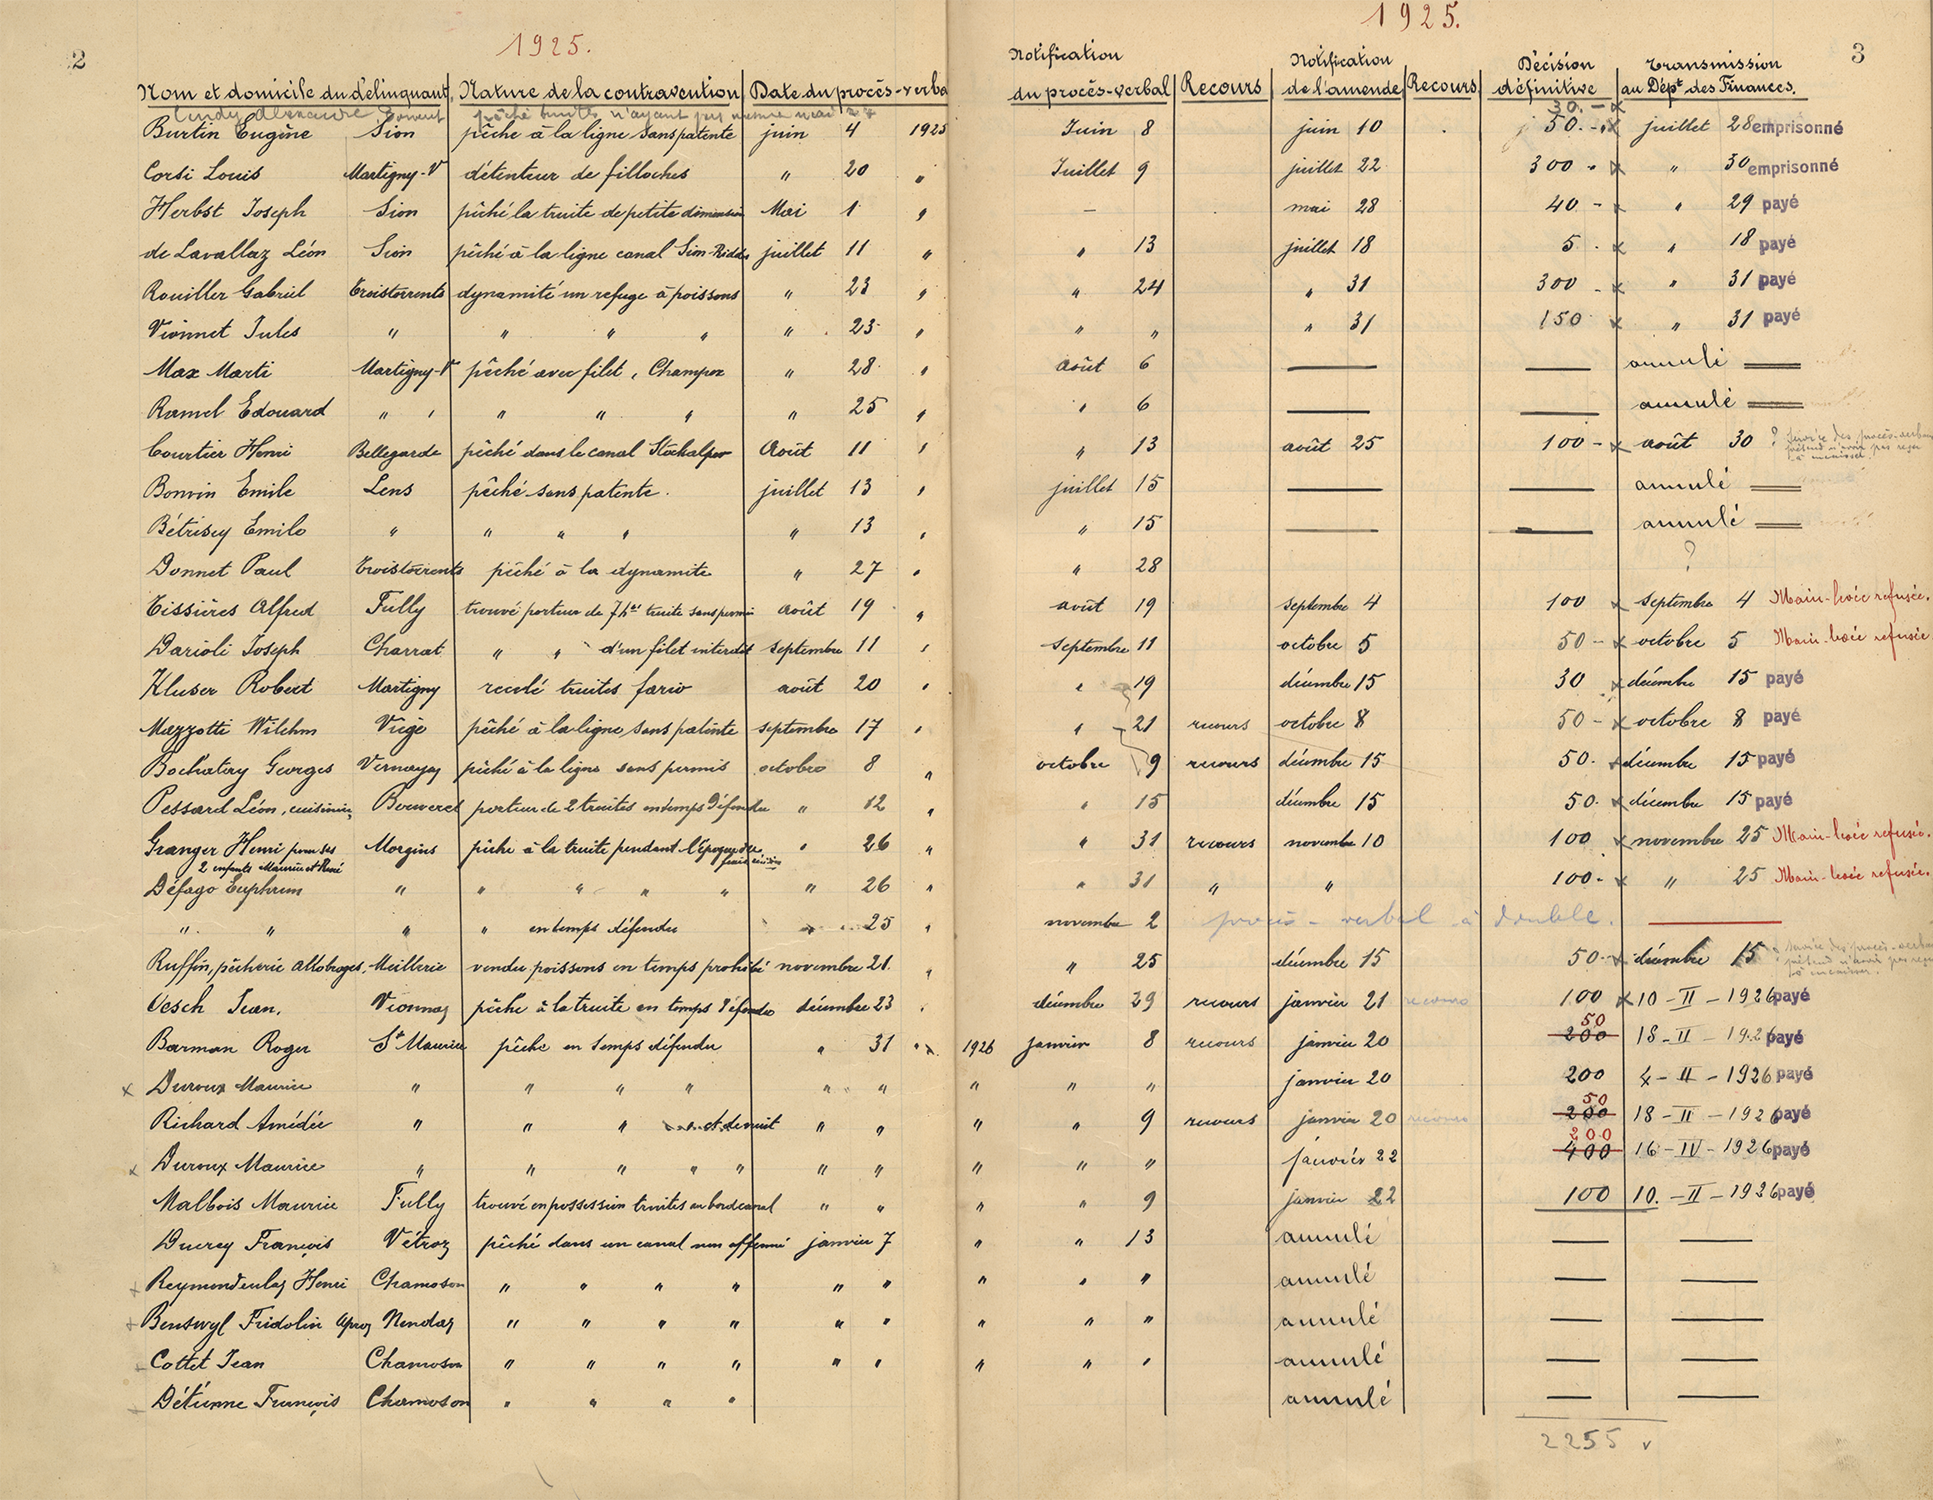 2
1925.
Nom et domicile du délinquant. Nature de la contravention Date du procès-verba
Burtin Eugène Sion pêche à la ligne sans patente juin 4 1925
Corsi Louis Martigny-V détenteur de filloches " 20 "
Herbst Joseph Sion pêché la truite de petite dimension Mai 1 "
de Lavallaz Léon Sion pêché à la ligne canal Sion-Riddes juillet 11 "
Rouiller Gabriel Troistorrents dynamité un refuge à poissons " 23 "
Vionnet Jules " " " " " 23 "
Max Marti Martigny-V pêché avec filet, Champex " 28 "
Ramel Edouard " " " " " " 25 "
Courtier Henri Bellegarde pêché dans le canal Stockalper Août 11 "
Bonvin Emile Lens pêché sans patente. juillet 13 "
Bétrisey Emile " " " " " 13 "
Donnet Paul Troistorrents pêché à la dynamite " 27 "
Tissières Alfred Fully trouvé porteur de truite sans permis août 19 "
Darioli Joseph Charrat " " d'un filet interdit septembre 11 "
Kluser Robert Martigny recelé truites fario août 20 "
Mazzotti Wilhm Viège pêché à la ligne sans patente septembre 17 "
Bochatay Georges Vernayaz pêché à la ligne sans permis octobre 8 "
Pessard Léon, cuisinier, Bouveret porteur de 2 truites en temps défendu " 12 "
Granger Henri pour ses Morgins pêche à la truite pendant l'époque du " 26 "
2 enfants Maurice et René
Défago Euphrem " " " " " " 26 "
" " " " en temps défendu " 25 "
Ruffin, pêcherie Allobroges, Meillerie vendu poissons en temps prohibé novembre 21. "
Oesch Jean. Vionnaz pêche à la truite en temps défendu décembre 23 "
Barman Roger St Maurice pêche en temps défendu " 31 "
x Duroux Maurice " " " " " "
Richard Amédée " " " et de nuit " "
x Duroux Maurice " " " " " " "
Malbois Maurice Fully trouvé en possession truites au bord canal " "
Ducrey François Vétroz pêché dans un canal non affermé janvier 7
Reymondeulaz Henri Chamoson " " " " " "
Benswyl Fridolin Aproz Nendaz " " " " " "
Cottet Jean Chamoson " " " " " "
Détienne François Chamoson " " " "
3
1925.
Notification du procès-verbal Recours Notification de l'amende Recours Décision définitive Transmission au Dépt des Finances.
30.- x
Juin 8 juin 10 50.- x juillet 28 emprisonné
Juillet 9 juillet 22 300 - x " 30 emprisonné
— mai 28 40 - x " 29 payé
" 13 juillet 18 5 . x " 18 payé
" 24 " 31 300 - x " 31 payé
" " " 31 150 x " 31 payé
août 6 — — annulé
" 6 — — annulé
" 13 août 25 100 - x août 30 ?
juillet 15 — — annulé
" 15 — — annulé
" 28 ?
août 19 septembre 4 100 x septembre 4 Main-levée refusée.
septembre 11 octobre 5 50 - x octobre 5 Main-levée refusée
" 19 décembre 15 30 x décembre 15 payé
" 21 recours octobre 8 50 - x octobre 8 payé
octobre 9 recours décembre 15 50. x décembre 15 payé
" 15 décembre 15 50. x décembre 15 payé
" 31 recours novembre 10 100 x novembre 25 Main-levée refusée.
" 31 " " 100 - x " 25 Main-levée refusée.
novembre 2 procès-verbal à double.
" 25 décembre 15 50. x décembre 15
décembre 29 recours janvier 21 recours 100 x 10-II-1926 payé
50
1926 janvier 8 recours janvier 20 200 18-II-1926 payé
" " " janvier 20 200 4-II-1926 payé
50
" " 9 recours janvier 20 recours 200 18-II-1926 payé
200
" " " janvier 22 400 16-IV-1926 payé
" " 9 janvier 22 100 10.-II-1926 payé
" " 13 annulé — —
" " " annulé — —
" " " annulé — —
" " " annulé — —
annulé — —
2255 v